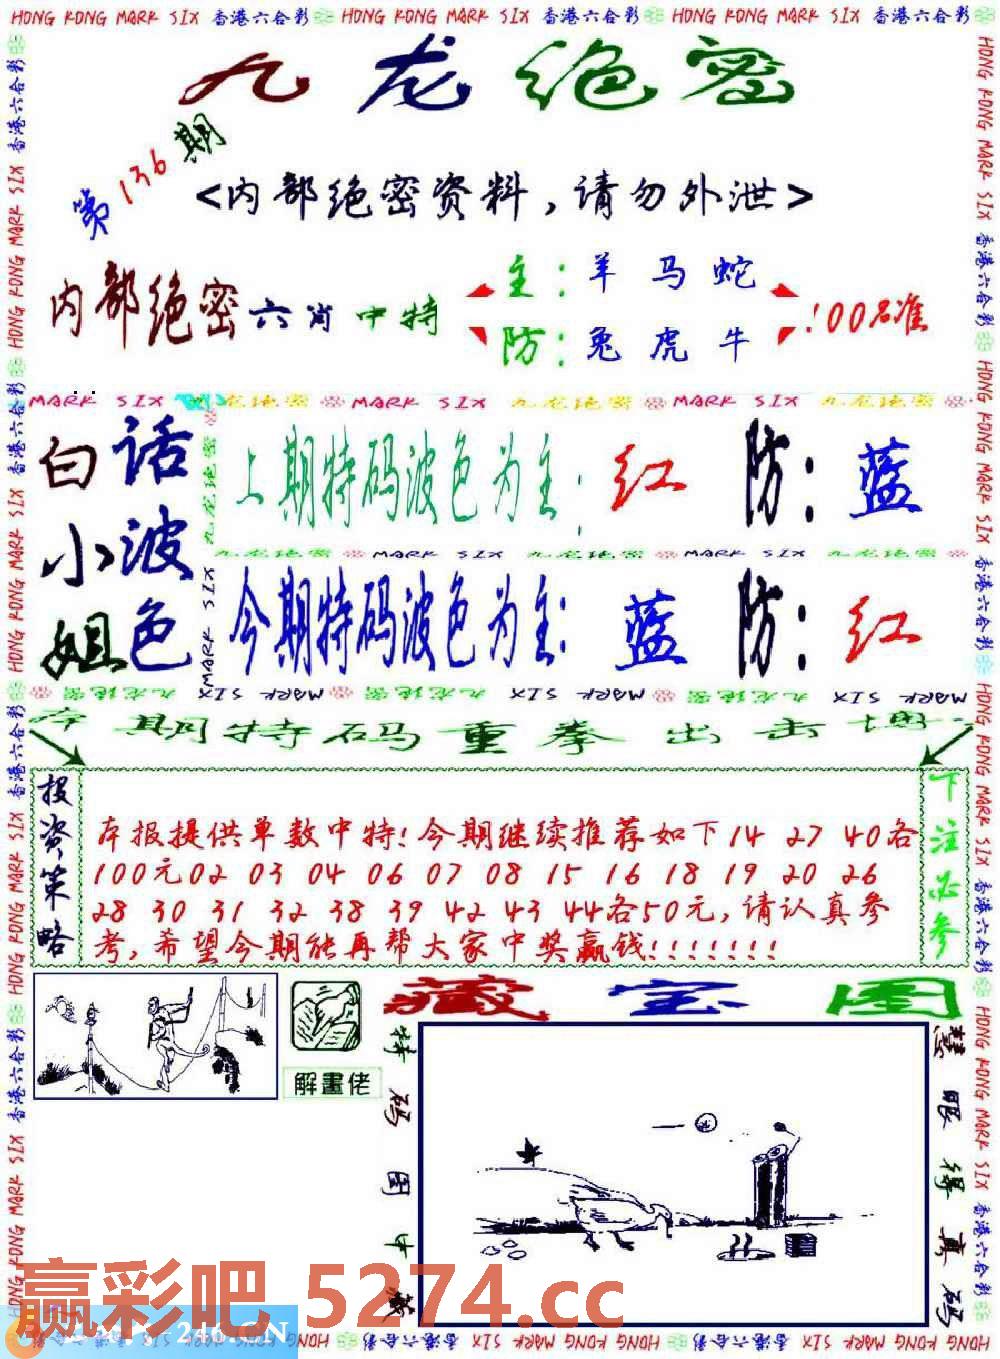 HONG KONG MARK SIX 香港六合彩 HONG KONG MARK SIX 香港六合彩 HONG KONG MARK SIX 香港六合彩
九龙绝密
第136期
<内部绝密资料,请勿外泄>
内部绝密六肖中特
主:羊马蛇
防:兔虎牛
100%准
MARK SIX 九龙绝密 MARK SIX 九龙绝密 MARK SIX 九龙绝密
白小姐
话波色
上期特码波色为主:红 防:蓝
九龙绝密 MARK SIX 九龙绝密 MARK SIX 九龙绝密
今期特码波色为主:蓝 防:红
本期特码重拳出击
投资策略
本报提供单数中特!今期继续推荐如下14 27 40各
100元02 03 04 06 07 08 15 16 18 19 20 26
28 30 31 32 38 39 42 43 44各50元,请认真参
考,希望今期能再帮大家中奖赢钱!!!!!!!
下注必参
解畫佬
藏宝图
特码图中藏
慧眼得真码
赢彩吧 5274.cc
246T.CN